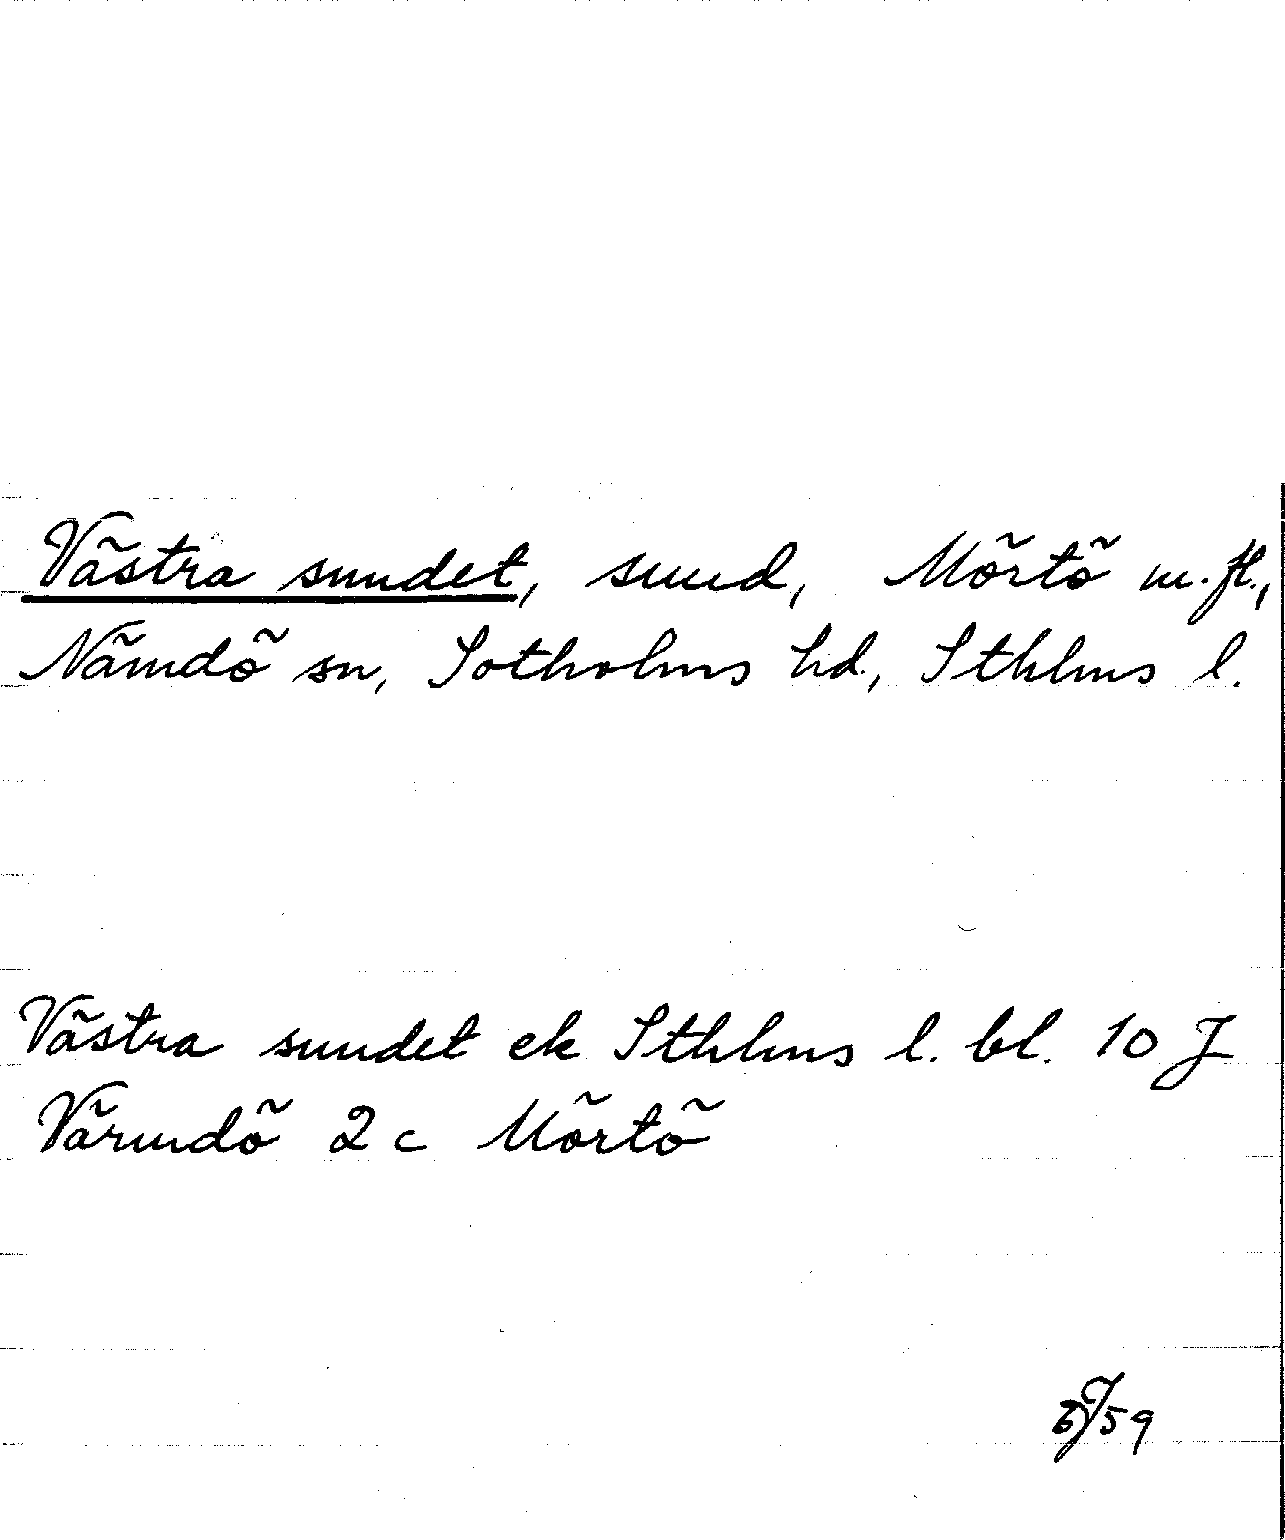 Västra sundet, sund, Mörtö m.fl.,
Nämdö sn, Sotholms hd., Sthlms l.
Västra sundet ek Sthlms l. bl. 10 J
Värmdö 2 c Mörtö
59